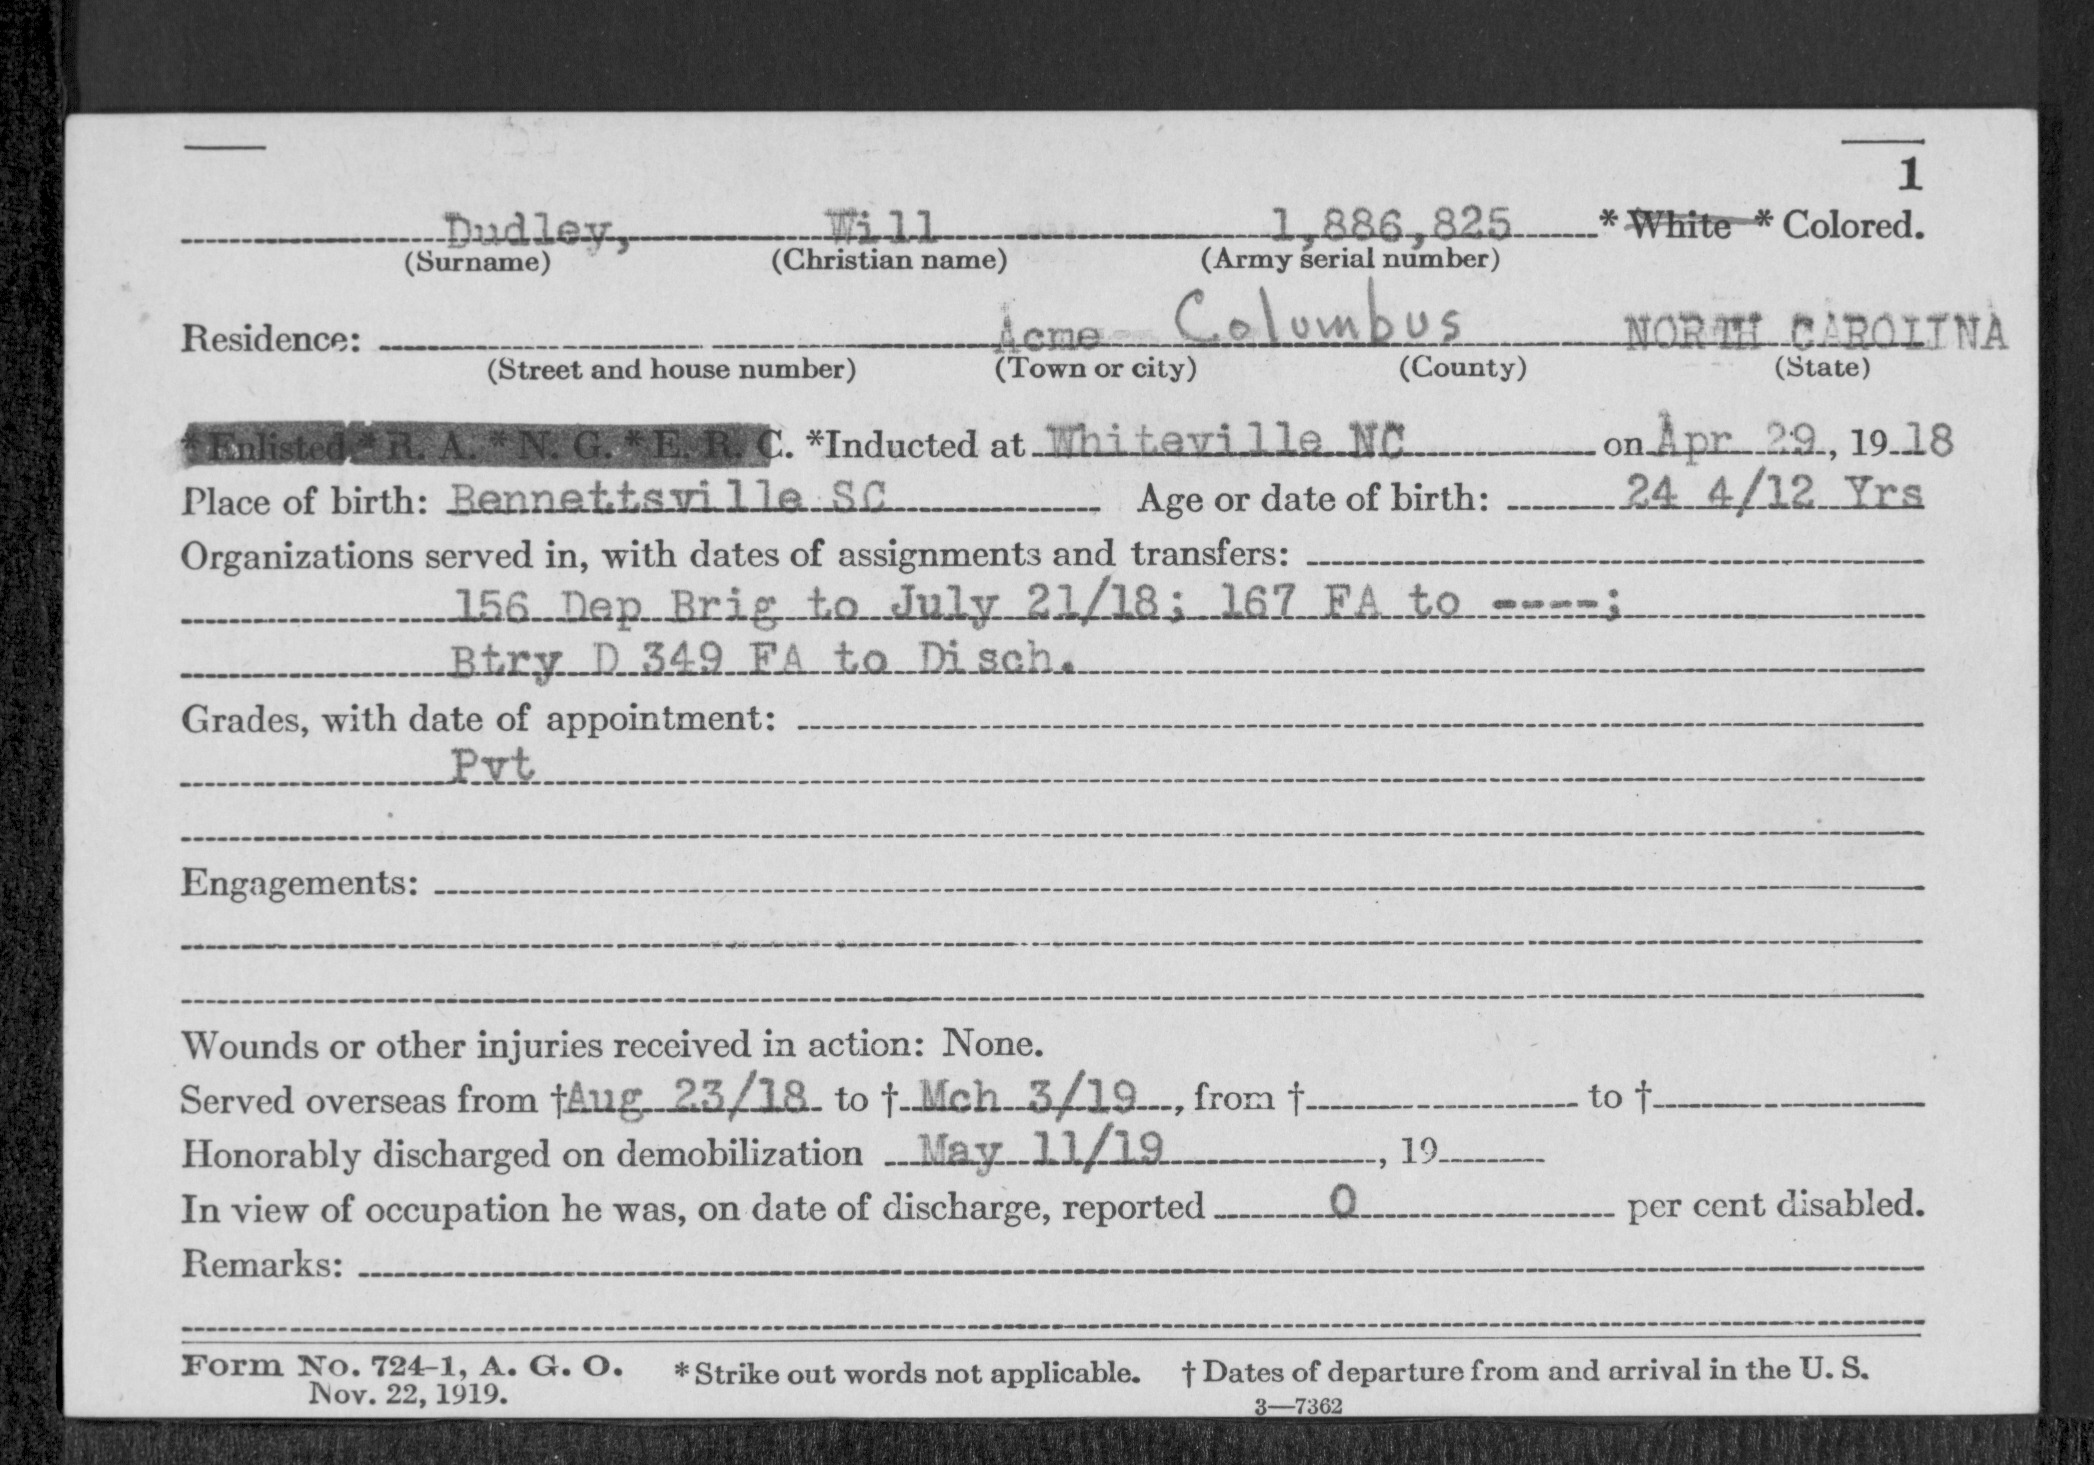 1
Dudley, Will 1,886,825 * White * Colored.
(Surname) (Christian name) (Army serial number)
Residence: Acme Columbus NORTH CAROLINA
(Street and house number) (Town or city) (County) (State)
* Enlisted * R. A. * N. G. * E. R. C. *Inducted at Whiteville NC on Apr 29, 19 18
Place of birth: Bennettsville SC Age or date of birth: 24 4/12 Yrs
Organizations served in, with dates of assignments and transfers:
156 Dep Brig to July 21/18; 167 FA to ----;
Btry D 349 FA to Disch.
Grades, with date of appointment:
Pvt
Engagements:
Wounds or other injuries received in action: None.
Served overseas from †Aug 23/18 to † Mch 3/19, from † to †
Honorably discharged on demobilization May 11/19, 19
In view of occupation he was, on date of discharge, reported 0 per cent disabled.
Remarks:
Form No. 724-1, A. G. O. *Strike out words not applicable. † Dates of departure from and arrival in the U. S.
Nov. 22, 1919. 3—7362